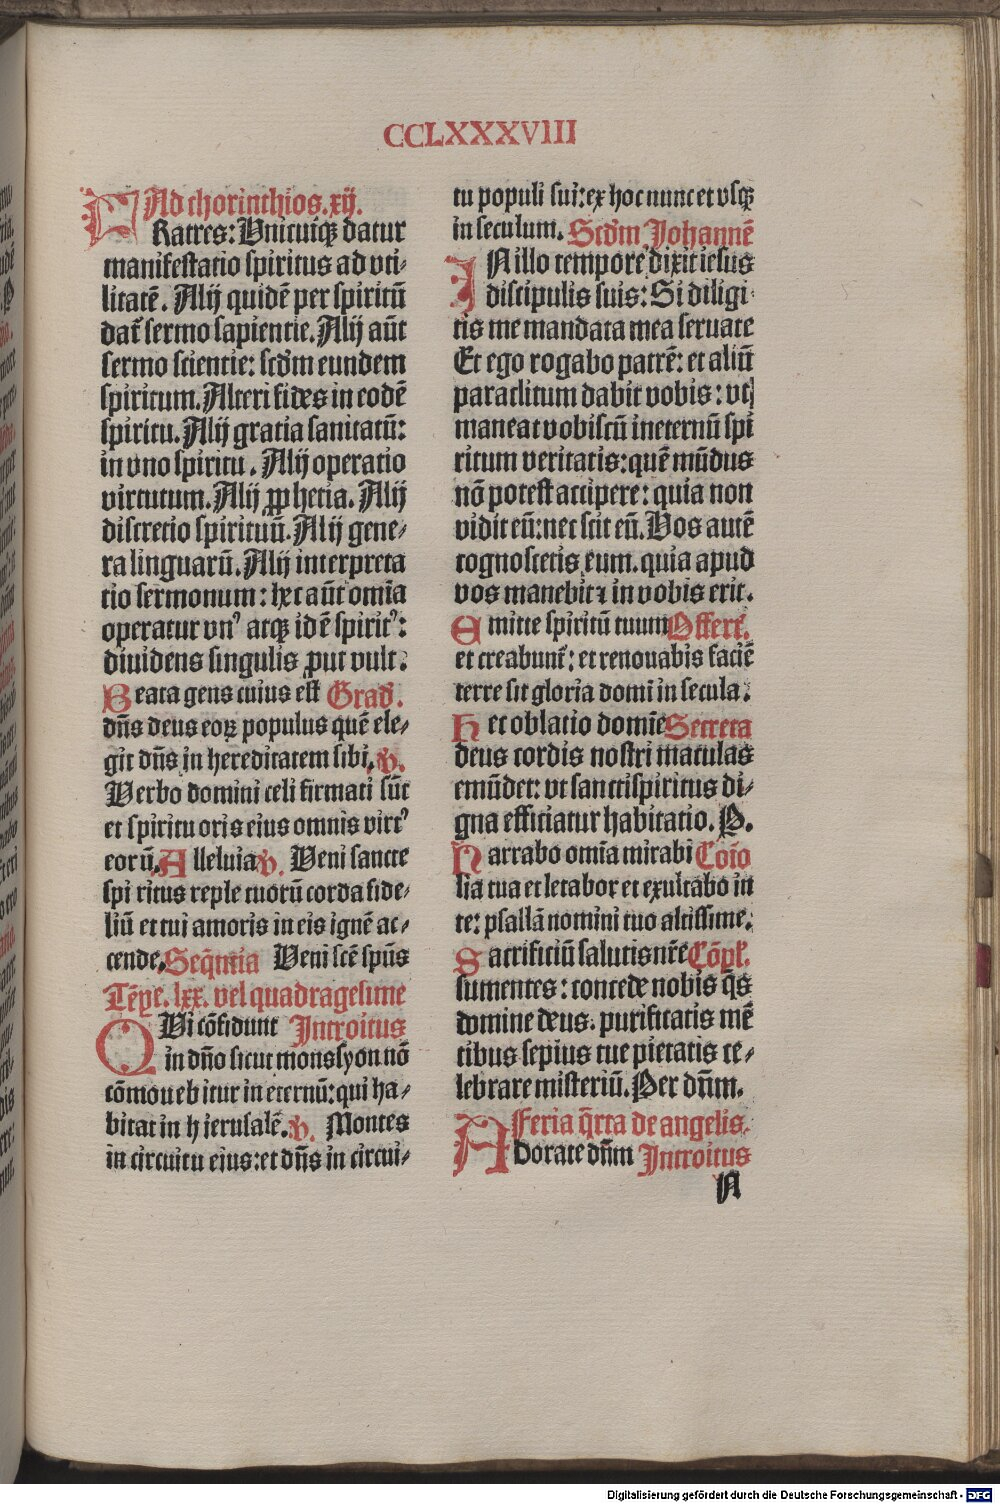 CCLXXXVIII
Ad chorinthios. xij.
FRatres: Vnicuiqꝫ datur
manifestatio spiritus ad vti-
litatē. Alij quidē per spiritū
dat᷑ sermo sapientie. Alij aūt
sermo scientie: scd̄m eundem
spiritum. Alteri fides in eodē
spiritu. Alij gratia sanitatū:
in vno spiritu. Alij operatio
virtutum. Alij ꝓphetia. Alij
discretio spirituū. Alij gene-
ra linguarū. Alij interpreta
tio sermonum: hec aūt om̄ia
operatur vnꝰ atqꝫ idē spiritꝰ:
diuidens singulis ꝓut vult.
Beata gens cuius est Grad᷑.
dn̄s deus eoꝝ populus quē ele-
git dn̄s in hereditatem sibi. ꝟ.
Verbo domini celi firmati sūt
et spiritu oris eius omnis virtꝰ
eorū. Alleluia ꝟ. Veni sancte
spiritus reple tuorū corda fide-
liū et tui amoris in eis ignē ac-
cende. Seq̄ntia Veni scē spūs
Tēpe. lxx. vel quadragesime
QVi cōfidunt Introitus
in dn̄o sicut mons syon nō
cōmouebitur in eternū: qui ha-
bitat in hierusalē. ꝟ. Montes
in circuitu eius: et dn̄s in circui-
tu populi sui: ex hoc nunc et vsqꝫ
in seculum. Scd̄m Johannē
IN illo tempore dixit iesus
discipulis suis: Si diligi-
tis me mandata mea seruate
Et ego rogabo patrē: et aliū
paraclitum dabit vobis: vt
maneat vobiscū in eternū spi
ritum veritatis: quē mūdus
nō potest accipere: quia non
vidit eū: nec scit eū. Vos autē
cognoscetis eum. quia apud
vos manebit ⁊ in vobis erit.
Emitte spiritū tuum Offert᷑.
et creabunt᷑: et renouabis faciē
terre sit gloria domi in secula.
Hec oblatio domīe Secreta
deus cordis nostri maculas
emūdet: vt sanctispiritus di-
gna efficiatur habitatio. P.
Narrabo om̄ia mirabi Cōio
lia tua et letabor et exultabo in
te: psallā nomini tuo altissime.
Sacrificiū salutis nr̄e Cōpl᷑.
sumentes: concede nobis q̄s
domine deus. purificatis mē
tibus sepius tue pietatis ce-
lebrare misteriū. Per dn̄m.
Feria q̄rta de angelis.
ADorate dn̄m Introitus
N
Digitalisierung gefördert durch die Deutsche Forschungsgemeinschaft - DFG